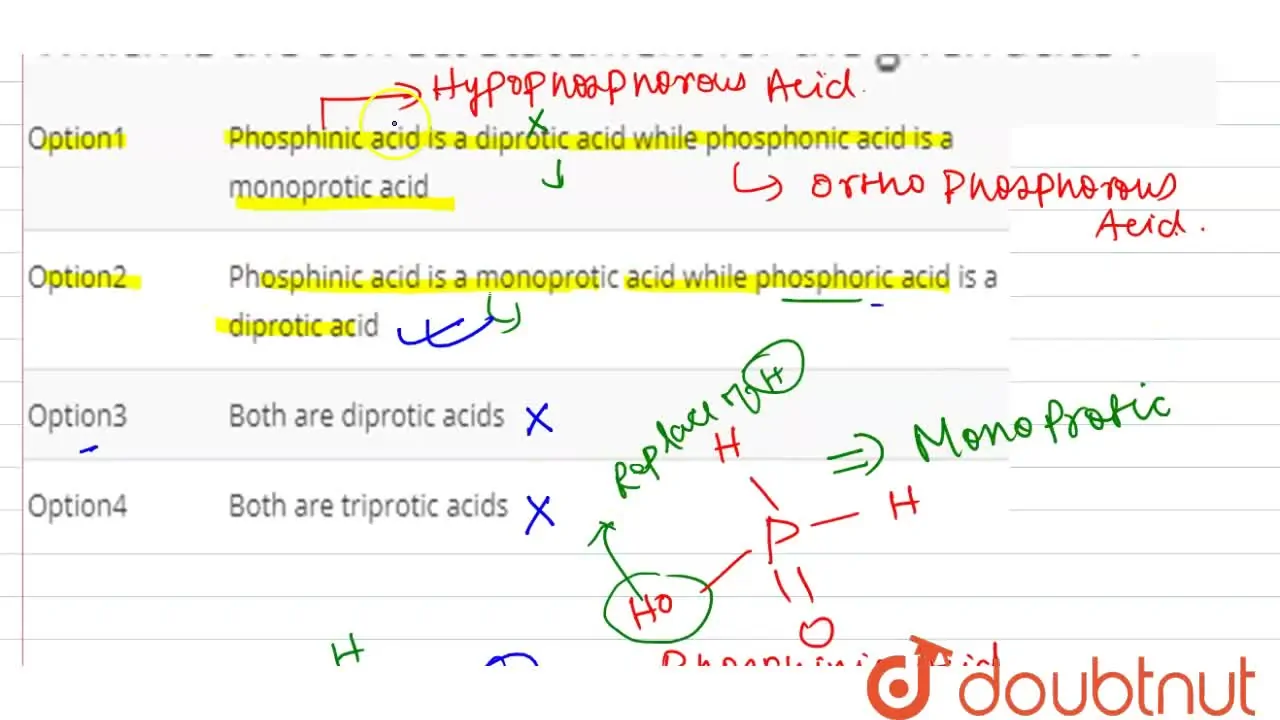 Hypophosphorous Acid.
Option1 Phosphinic acid is a diprotic acid while phosphonic acid is a
monoprotic acid
ortho Phosphorous
Acid.
Option2 Phosphinic acid is a monoprotic acid while phosphoric acid is a
diprotic acid
Option3 Both are diprotic acids X
Replace H
H
Monoprotic
H
P
Option4 Both are triprotic acids X
HO
O
H
Phosphinic Acid
doubtnut